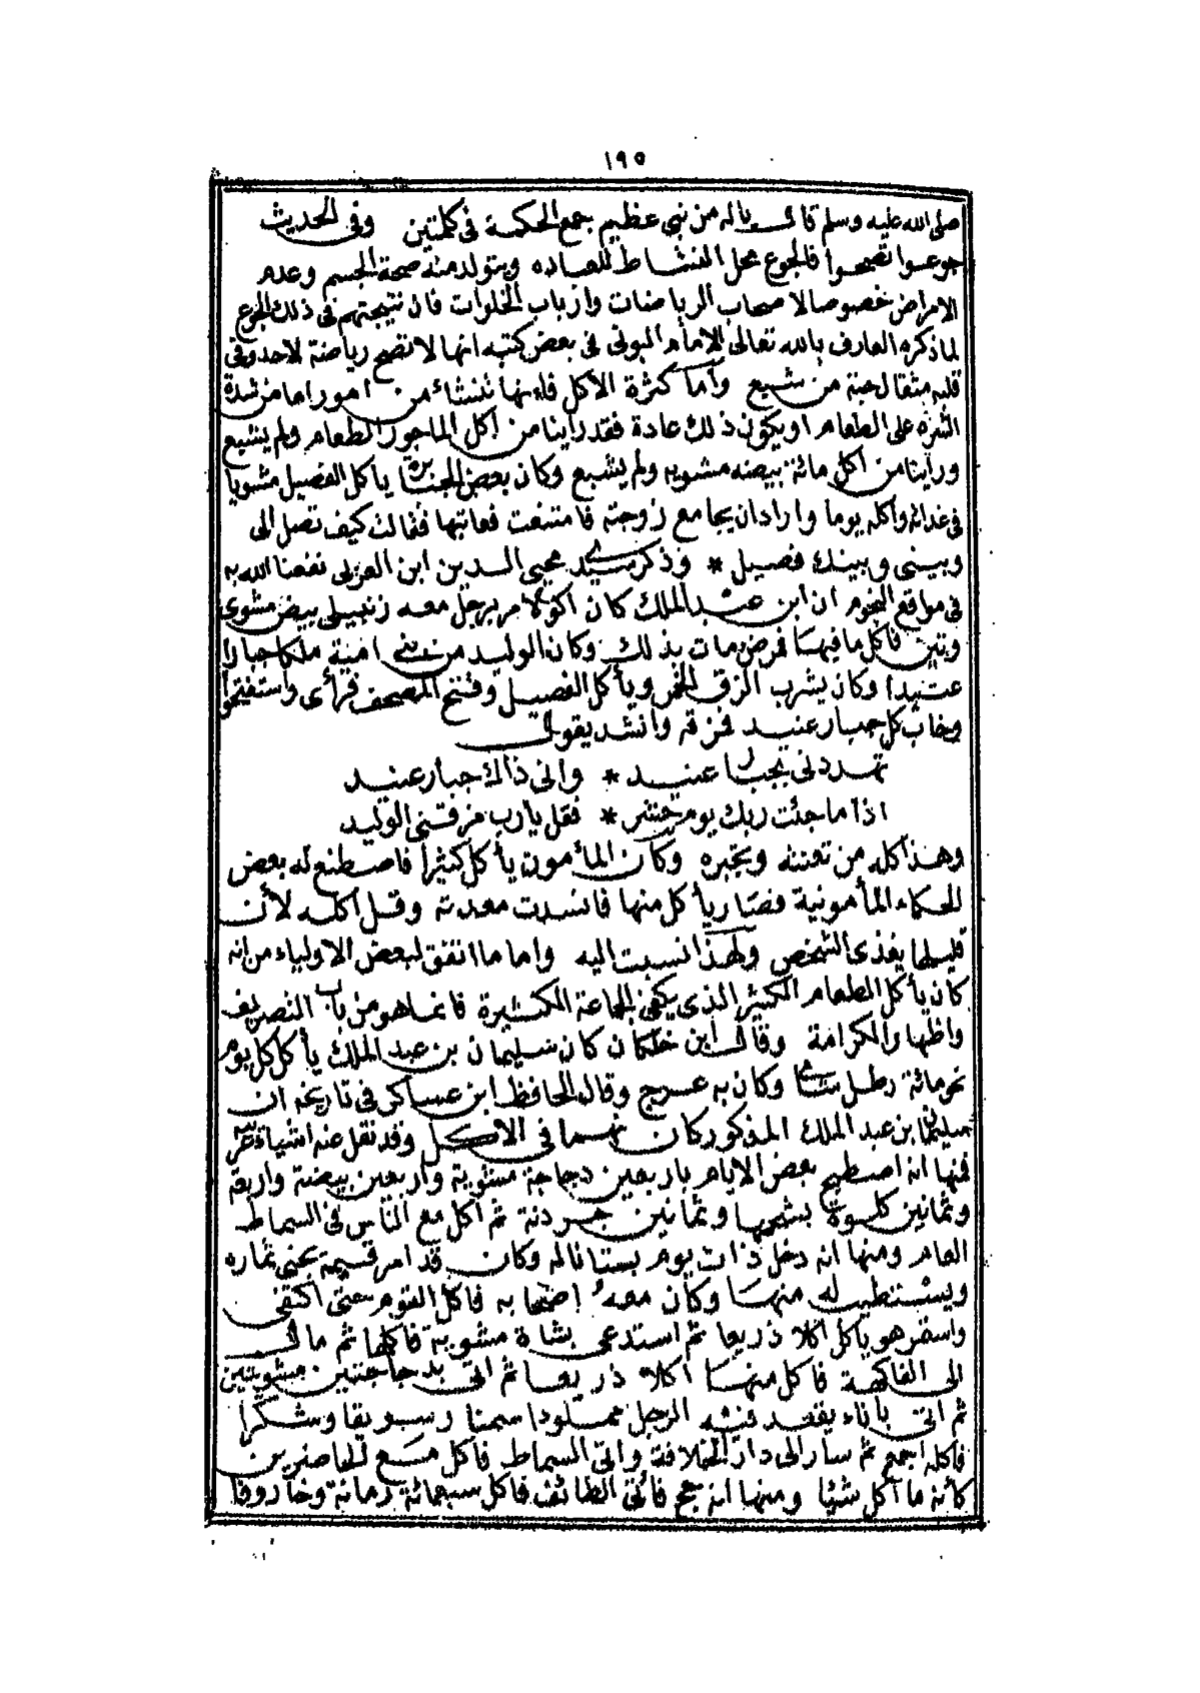 ١٩٥
صلى الله عليه وسلم قال ياله من نبي عظيم جمع الحكمة فى كلمتين وفى الحديث
جوعوا تصحوا فالجوع محل النشاط للعباده ويتولد منه صحة الجسم وعدم
الامراض خصوصا لاصحاب الرياضات وارباب الخلوات فان نتيجتهم فى ذلك الجوع
لما ذكره العارف بالله تعالى الامام البونى فى بعض كتبه انها لا تصح رياضة لاحد وفى
قلبه مثقال حبة من شبع وأما كثرة الأكل فانها تنشاء من امور اما من شدة
الشره على الطعام او يكون ذلك عادة فقد راينا من اكل الماجور الطعام ولم يشبع
وراينا من اكل مائة بيضه مشويه ولم يشبع وكان بعض الجبابرة يأكل الفصيل مشويا
فى غدائه وأكله يوما وارادان يجامع زوجته فامتنعت فعاتبها فقالت كيف تصل الى
وبينى وبينك فصيل * وذكر سيدى محيى الدين ابن العربى نفعنا الله به
فى مواقع النجوم ان ابن عبد الملك كان اكولا مر برجل معه زنبيلى بيض مشوى
وتين فأكل ما فيهما فمرض ومات بذلك وكان الوليد من بنى امية ملكا جبارا
عنيدا وكان يشرب الزق الخمر ويأكل الفصيل وفتح المصحف فرأى واستفتحوا
وخاب كل جبار عنيد فمزقه وانشد يقول
تهددنى بجبار عنيد * وانى ذاك جبار عنيد
اذا ما جئت ربك يوم حشر * فقل يارب مزقنى الوليد
وهذا كله من تعنته وتجبره وكان المأمون يأكل كثيرا فاصطنع له بعض
الحكماء المأمونية فصار يأكل منها فانسدت معدته وقل أكله لأن
قليلها يغذى الشخص ولهذا نسبت اليه واما ما اتفق لبعض الاولياء من انه
كان يأكل الطعام الكثير الذى يكفى الجماعة الكثيرة فانما هو من باب التصريف
واظهار الكرامة وقال ابن خلكان كان سليمان بن عبد الملك يأكل كل يوم
نحو مائة رطل شامى وكان به عرج وقال الحافظ ابن عساكر فى تاريخه ان
سليمان ابن عبد الملك المذكور كان نهما فى الأكل وقد نقل عنه اشياء
فمنها انه اصطبح بعض الايام باربعين دجاجة مشوية واربعين بيضة واربعة
وثمانين كلوة بشحمها وثمانين جردنة ثم أكل مع الناس فى السماط
العام ومنها انه دخل ذات يوم بستانا له وكان قد امر قيمه بجنى ثماره
ويستطيب له منها وكان معه اصحابه فاكل القوم حتى اكتفى
واستمر هو يأكل اكلا ذريعا ثم استدعى بشاة مشوية فاكلها ثم مال
الى الفاكهة فاكل منها اكلا ذريعا ثم اتى بدجاجتين مشويتين
ثم اتى باناء يقعد فيه الرجل مملودا سمنا وسويقا وسكرا
فاكله اجمع ثم سار الى دار الخلافة واتى السماط فأكل مع الحاضرين
كأنه ما أكل شيئا ومنها انه حج فأتى الطائف فاكل سبعمائة رمانة وخاروفا